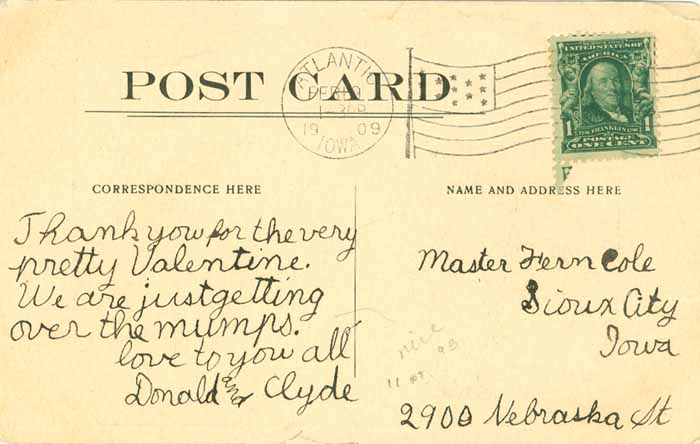 POST CARD
ATLANTIC
FEB
19 09
IOWA
UNITED STATES OF
AMERICA
1 FRANKLIN 1
POSTAGE
ONE CENT
CORRESPONDENCE HERE
Thank you for the very
pretty Valentine.
We are just getting
over the mumps.
love to you all
Donald and Clyde
NAME AND ADDRESS HERE
Master Fern Cole
Sioux City
Iowa
2900 Nebraska St
nice